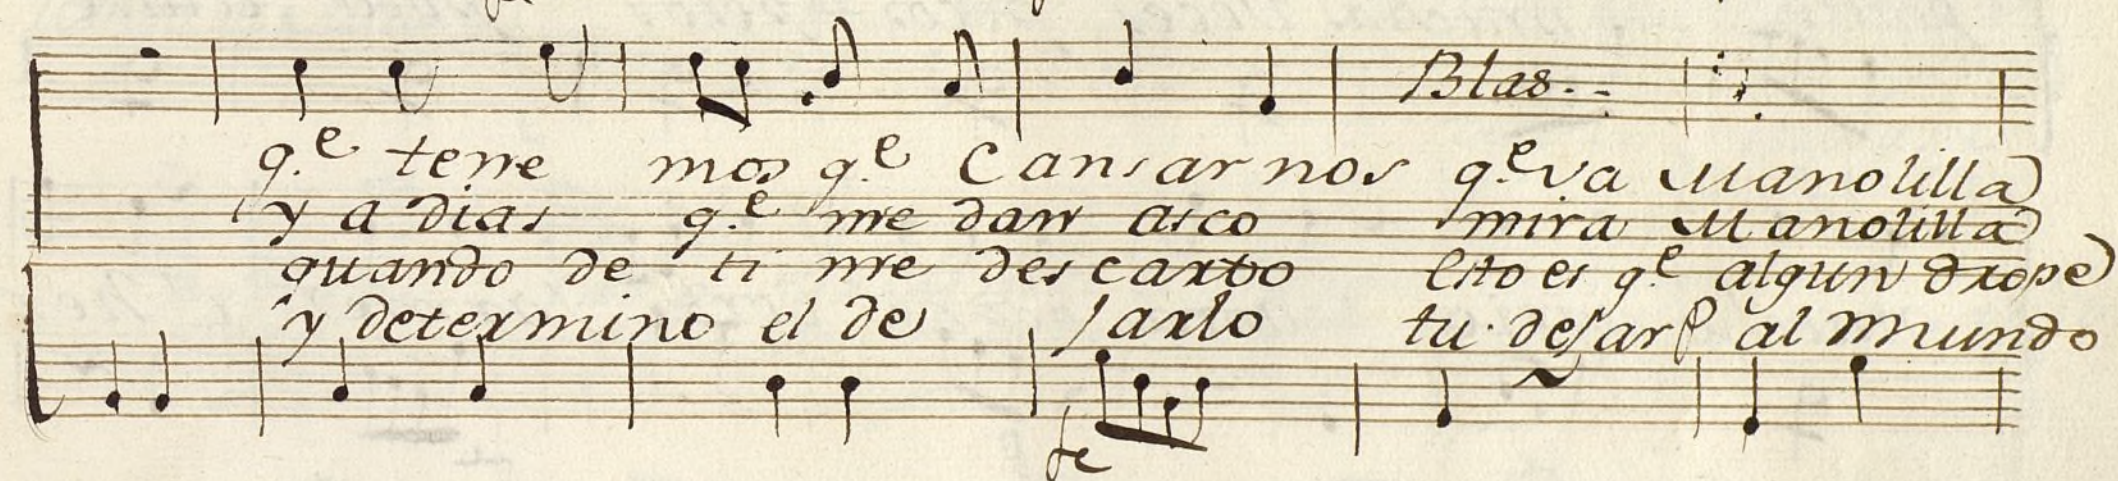 Blas..
q.e tenemos q.e Cansarnos q.e va Manolilla
y a dias q.e me dan asco mira Manolilla
quando de ti me descarto Esto es q.e algun drope
y determino el dejarlo tu dejar al mundo
fe